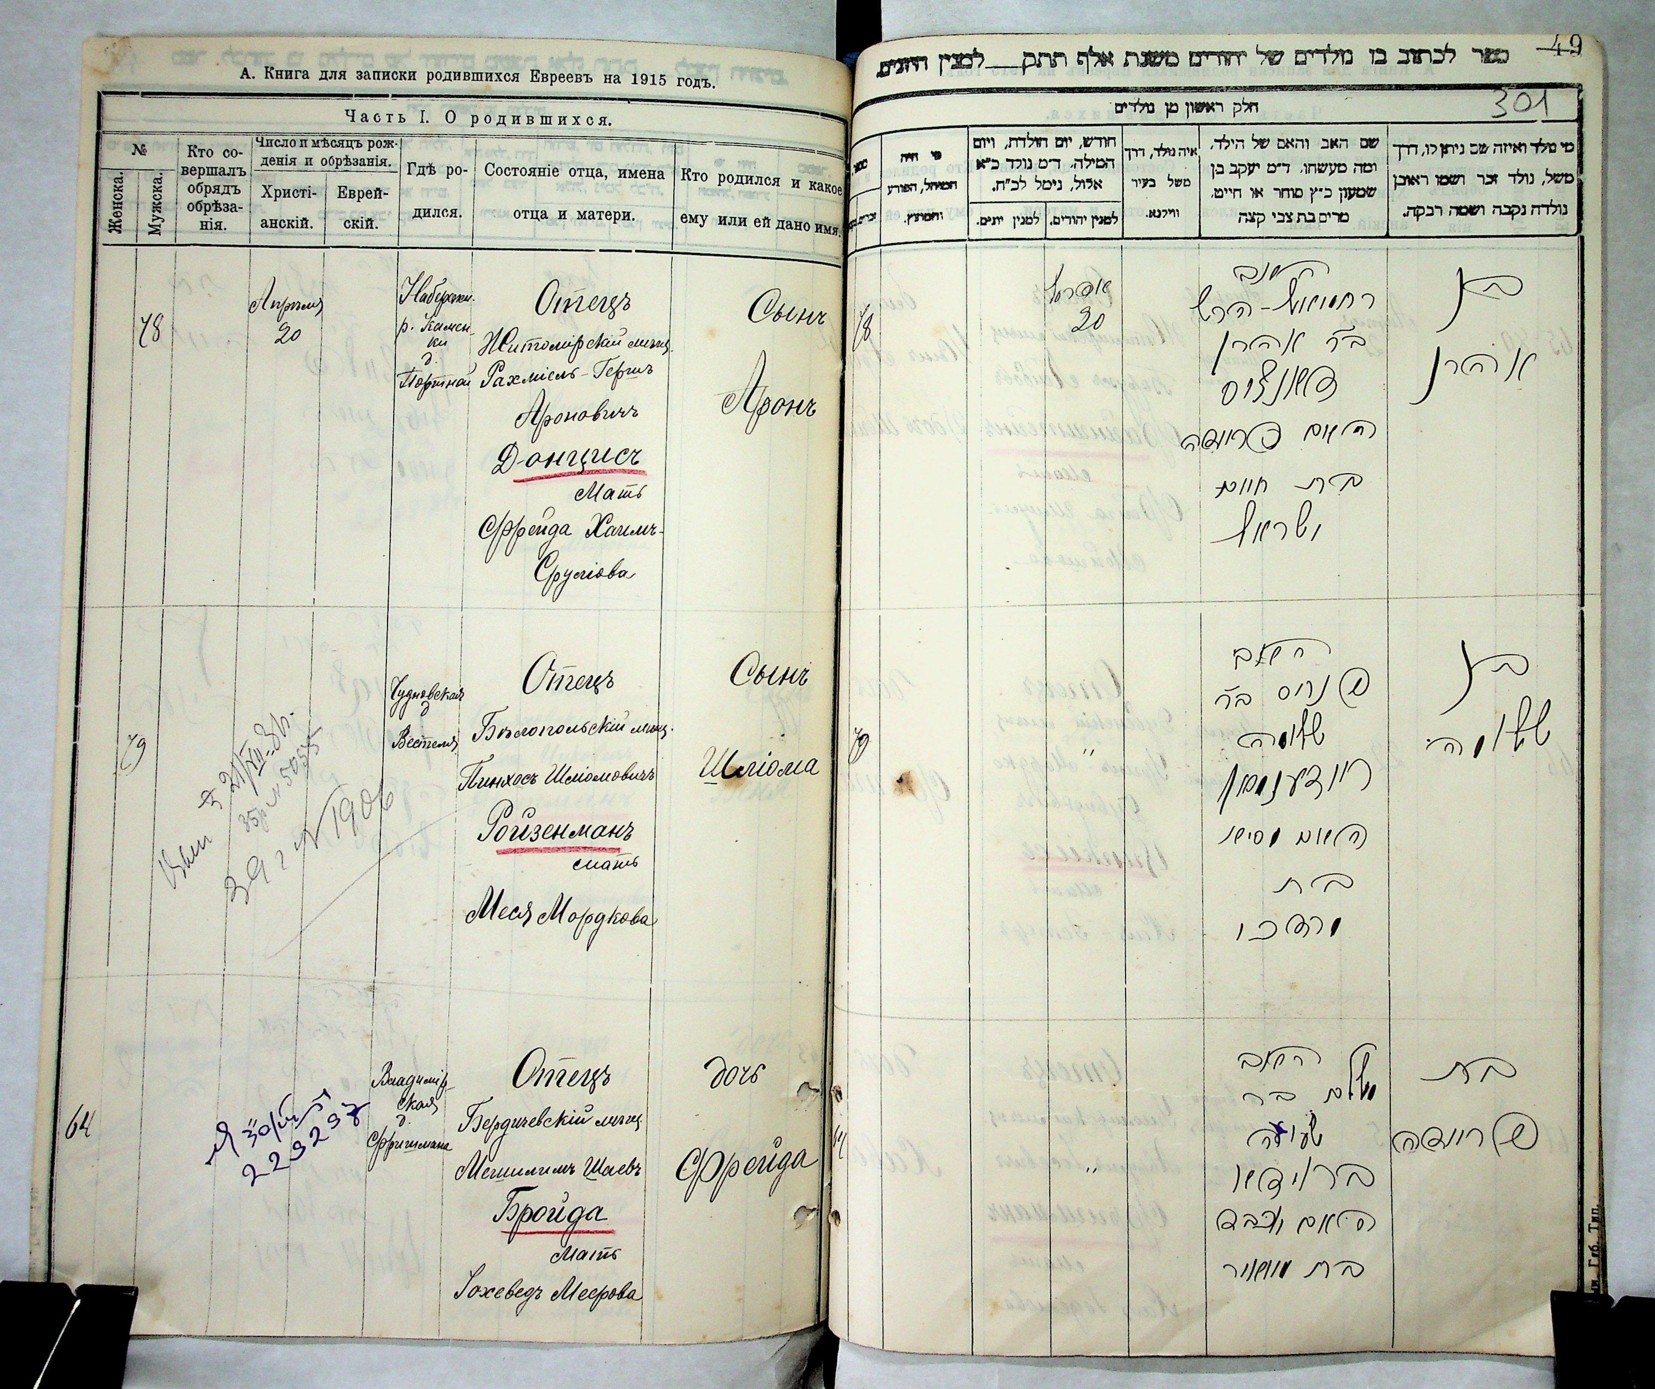 А. Книга для записки родившихся Евреевъ на 1915 годъ.
Часть I. О родившихся.
№
Женска.
Мужска.
Кто со-
вершалъ
обрядъ
обрѣза-
нія.
Число и мѣсяцъ рож-
денія и обрѣзанія.
Христі-
анскій.
Еврей-
скій.
Гдѣ ро-
дился.
Состояніе отца, имена
отца и матери.
Кто родился и какое
ему или ей дано имя.
78
Апрѣля
20
р. Камен-
ки
д.
Портной
Отецъ
Житомірскій мѣщ.
Рахміель-Гершъ
Ароновичъ
Донцисъ
Мать
Фрейда Хаимъ-
Сруліова
Сынъ
Аронъ
79
Чудновская
д
Отецъ
Бѣлопольскій мѣщ.
Пинхосъ Шліомовичъ
Ройзенманъ
мать
Меся Мордкова
Сынъ
Шліома
64
Владимір-
ская
д.
Фришмана
223237
Отецъ
Бердичевскій мѣщ
Мешилимъ Шаевъ
Бройда
Мать
Іохеведъ Меерова
дочь
Фрейда
49
ספר לכתוב בו נולדים של יהודים משנת אלף תתק למנין היונים.
301
חלק ראשון מן נולדים
מי נולד ואיזה שם ניתן לו, דרך
משל, נולד זכר ושמו ראובן
נולדה נקבה ושמה רבקה.
שם האב והאם של הילד.
ומה מעשהו. ד״מ יעקב בן
שמעון כ״ץ סוחר או חייט.
מרים בת צבי קצה
איה נולד, דרך
משל בעיר
ווילנא.
חודש, יום הולדת, ויום
המילה. ד״מ נולד כ״א
אלול, נימל לכ״ח.
למנין יהודים.
למנין יונים.
מי היה
המוהל, הפורע
והמוצץ.
78
20
האב
ב״ר אהרן
האם פריידה
בת חיים
ישראל
בן
אהרן
79
"
האב
פנחס ב״ר
שלמה
רויזענמאן
האם מסיא
בת
מרדכי
בן
שלמה
64
"
האב
משלם בר
ברוידא
האם יוכבד
בת מאיר
בת
פריידה